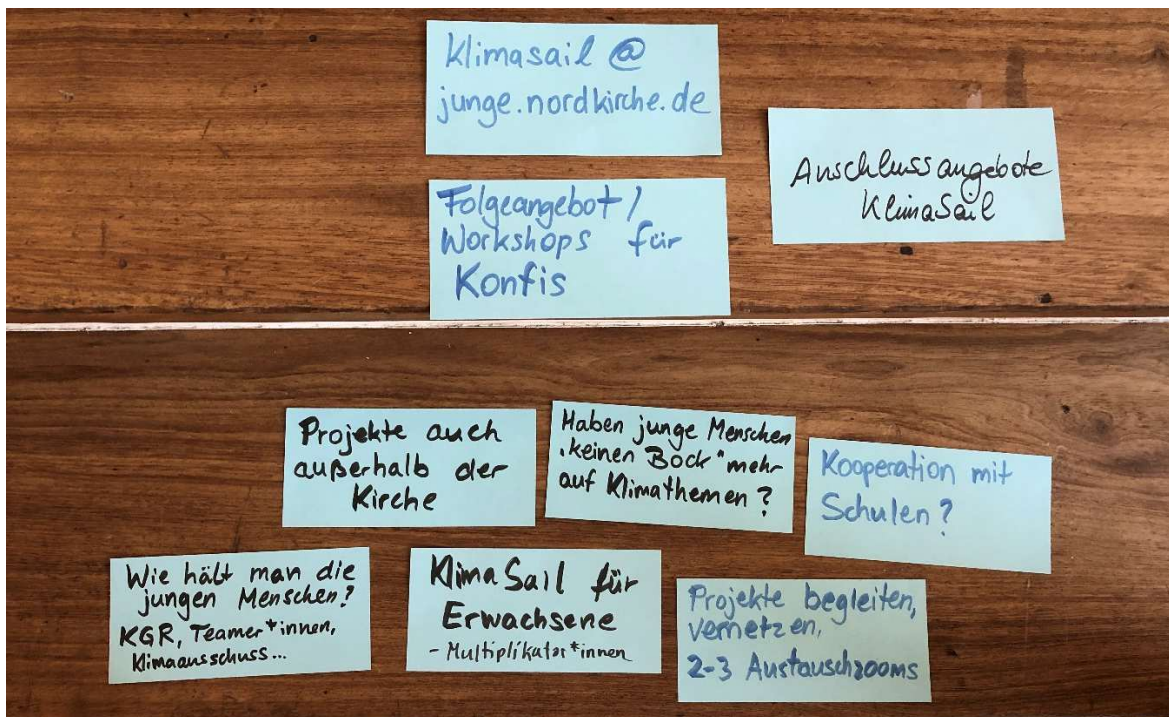 Klimasail @
junge.nordkirche.de
Anschlussangebote
KlimaSail
Folgeangebot /
Workshops für
Konfis
Projekte auch
außerhalb der
Kirche
Haben junge Menschen
„keinen Bock" mehr
auf Klimathemen?
Kooperation mit
Schulen?
Wie hält man die
jungen Menschen?
KGR, Teamer*innen,
Klimaausschuss...
KlimaSail für
Erwachsene
- Multiplikator*innen
Projekte begleiten,
vernetzen,
2-3 Austauschzooms